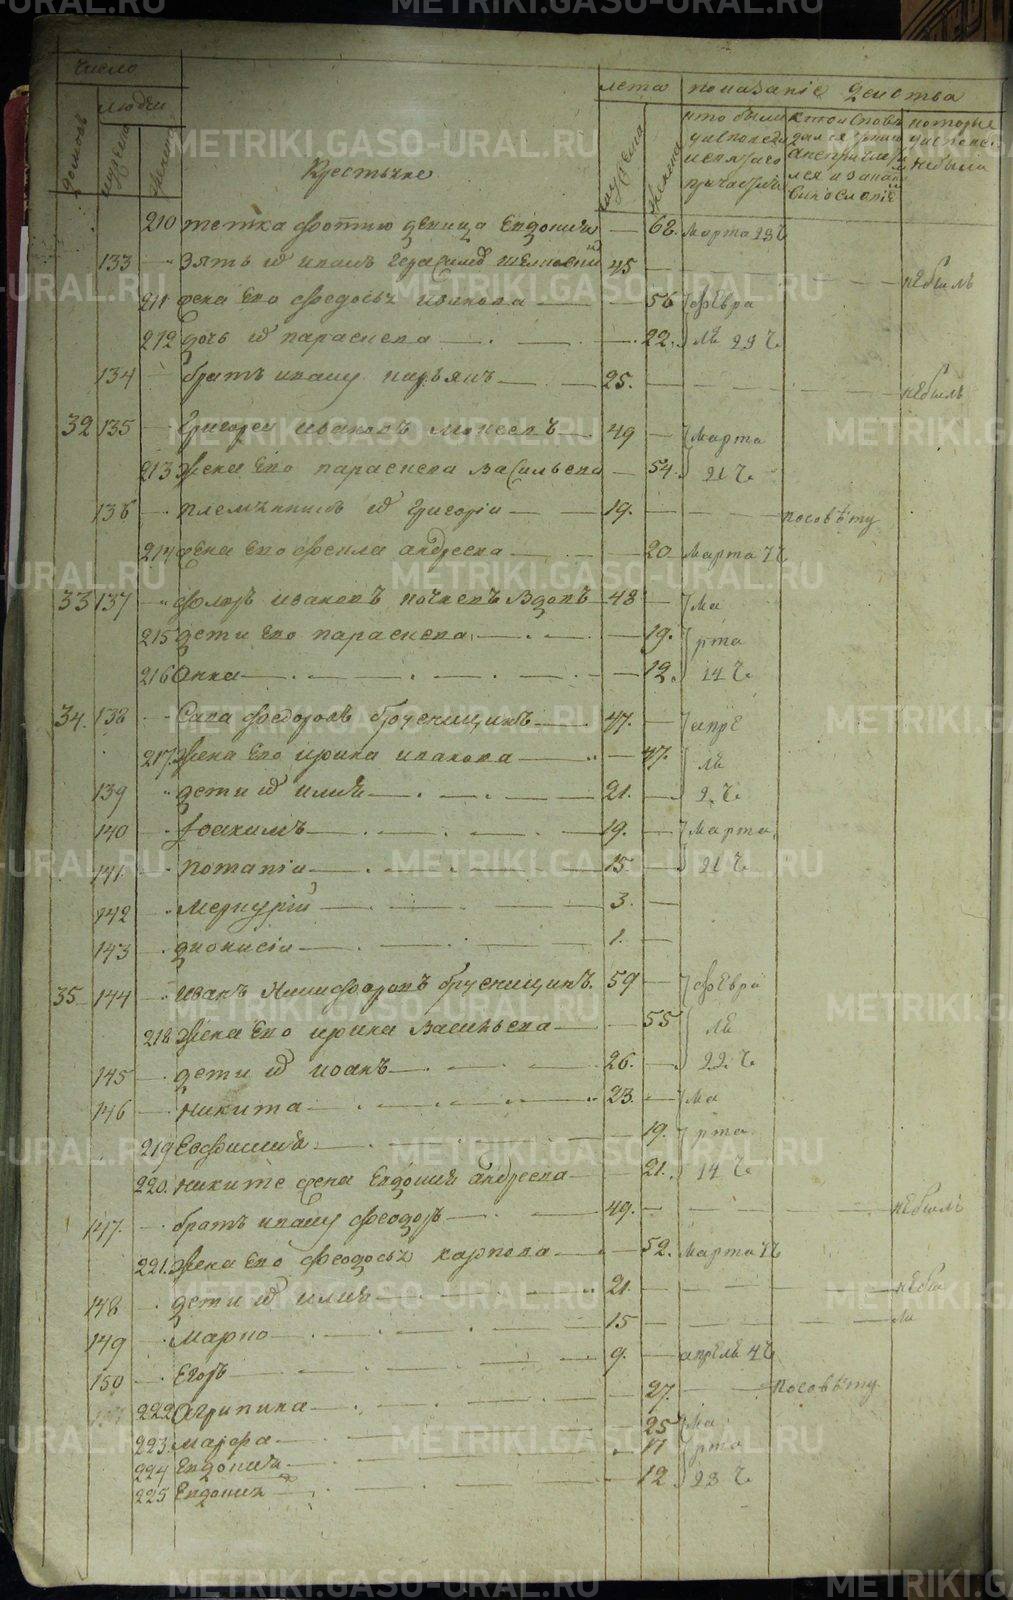 METRIKI.GASO-URAL.RU
число
людеи
домовъ
мужеска
женска
Крестьяне
лета
мужеска
женска
показаніе действа
кто были
у исповеди
и святаго
причастия
которые
у исповеди
не были
210 тетка Фотию девица Евдокия — 62. Марта 23 Ч
133 зять Иванъ Герасимов — 45 — не былъ
211 жена Его Федосья Иванова — 56 Февра
212 дочь параскева — 22. лЯ 29 Ч.
134 братъ ивану — 25. — не былъ
32 135 Григореи Ивановъ — 49 — Марта
213 Жена Его параскева Васильева — 54. 21 Ч.
136 племянникъ Григории — 19. — посовѣту
214 жена Его Фекла андреева — 20 Марта 7 Ч
33 137 Флоръ Ивановъ вдовъ — 48 — Ма
215 дети Его параскева — 19. рта
216 Анна — 12. 14 Ч.
34. 138 Сава Федоровъ брусницынъ — 47. — апре
217. Жена Его ирина иванова — 47. лЯ
139 дети илия — 21. — 2. Ч.
140 Іоакимъ — 19. — Марта
141 потапіи — 15 — 21 Ч
142 Меркурій — 3. —
143 дионисіи — 1. —
35 144 Иванъ Никифоровъ брусницинъ. 59 — Февра
218 Жена Его ирина Васильева — 55 лЯ
145 дети иоанъ — 26. — 22. Ч.
146 Никита — 23. — Ма
219 Евфимия — 19. рта
220. Никите жена Евдокия андреева — 21. 14 Ч
147. братъ ивану Феодоръ — 49. — не былъ
221. Жена Его Феодосья карпова — 52. Марта 7 Ч
148 дети илия — 21. — не бы
149 Марко — 15 — ли
150 Егоръ — 9. — апрель 4 Ч
222 Агрипина — 27. — посовѣту
223. марфа — 25 Ма
224 Евдокия — 17 рта
225 Евдокия — 12 23 Ч